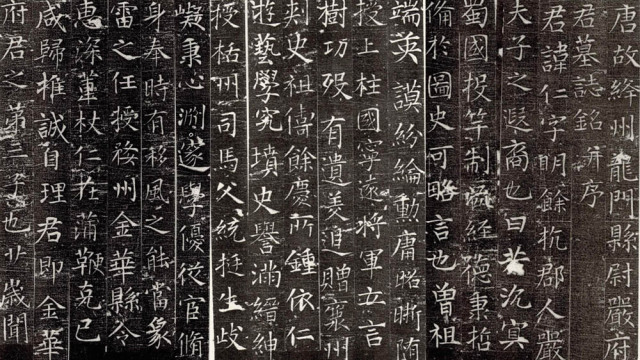 唐故絳州龍門縣尉嚴府
君墓誌銘并序
君諱仁字明餘杭郡人嚴
夫子之遐裔也曰若沉冥
蜀國投竿制經德秉哲
備於圖史可略言也曾祖
端英謨紛綸動庸昭晰隋
授上柱國寧遠將軍立言
樹功歿有遺美追贈襄州
刺史祖儔餘慶所鍾依仁
遊藝學究墳史譽滿縉紳
授栝州司馬父統挺生歧
嶷秉心淵邃學優從官脩
身奉時有移風之能當象
雷之任授婺州金華縣令
惠深董杖仁在蒲鞭克己
咸歸推誠自理君即金華
府君之第三子也廿歲聞